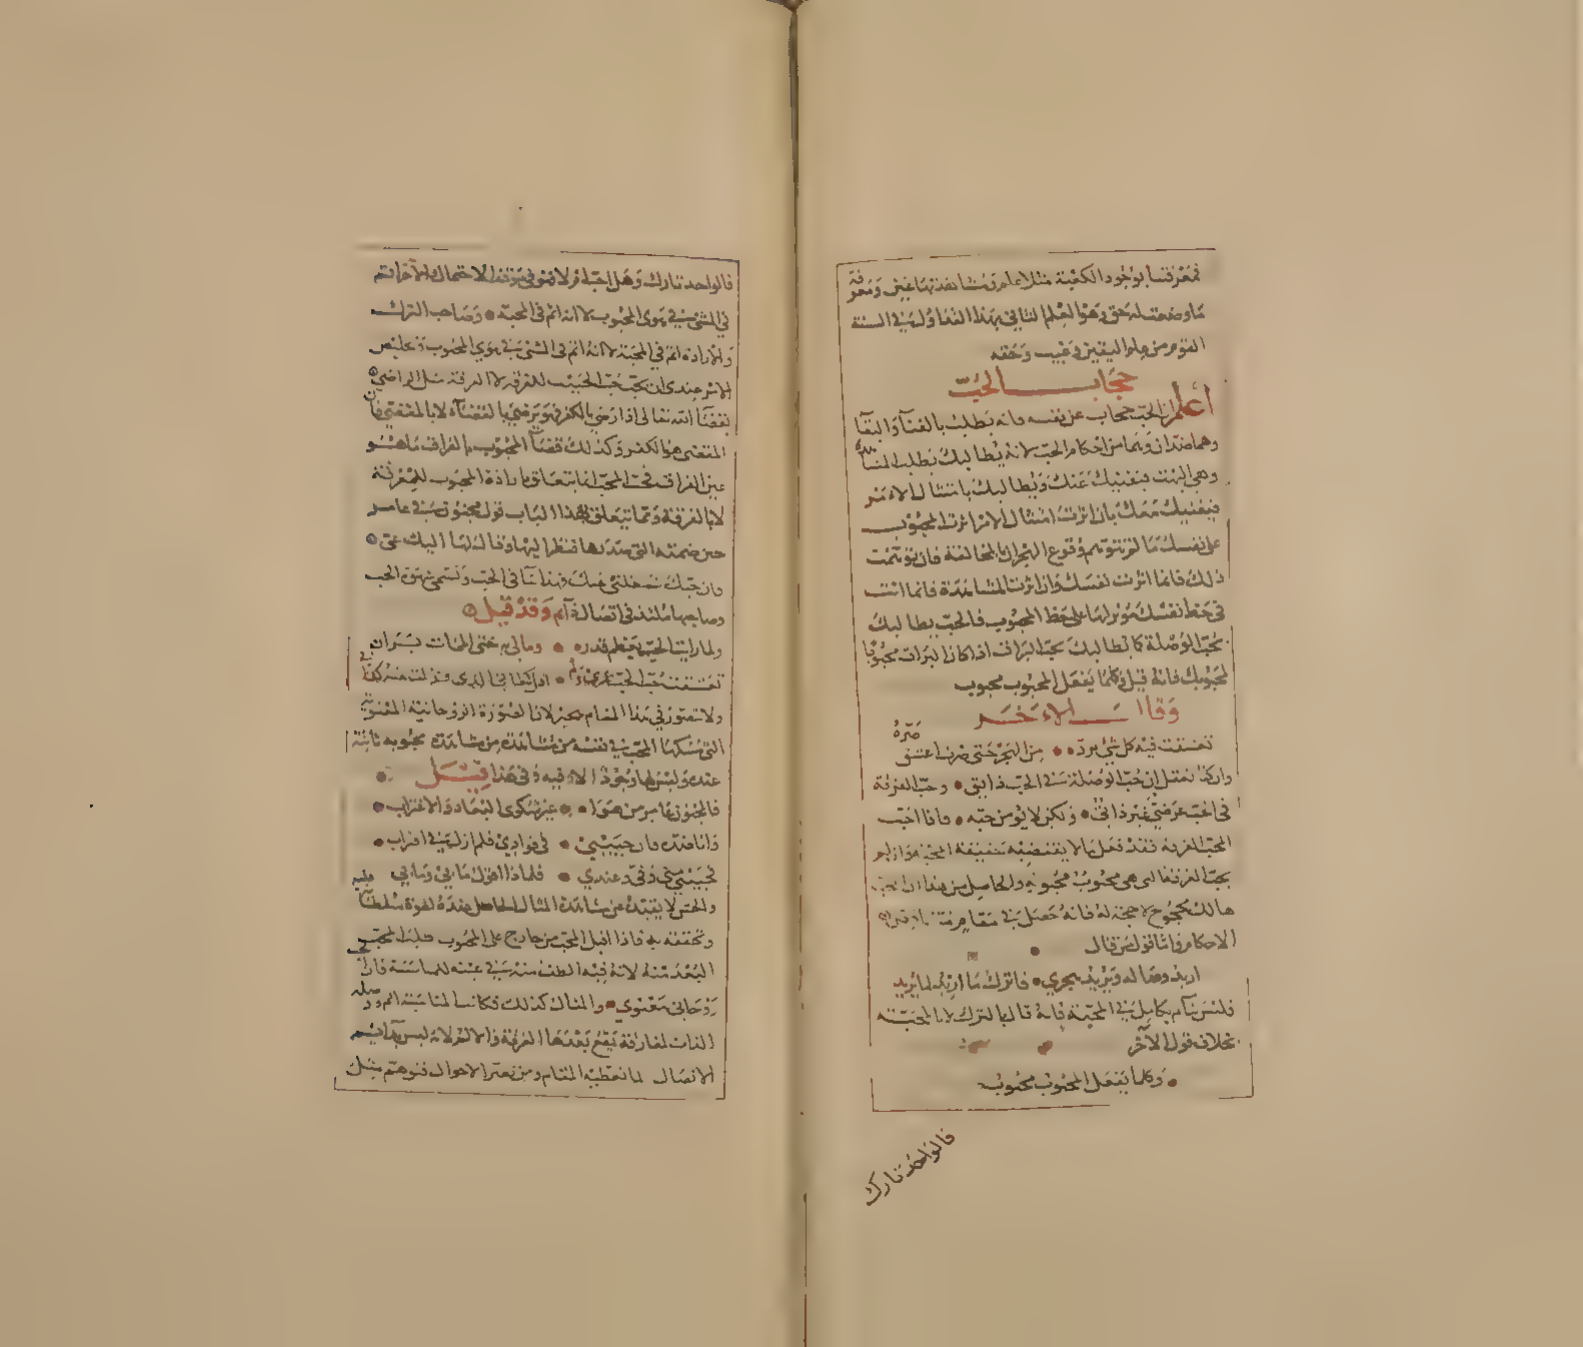 فمعرفتنا بوجود الكعبة مثلا علم ومشاهدتها عين ومعرفة
ما وضعت له حق وهو العلم الثاني بهذا
القوم من علم اليقين وعينه وحقه
حجاب الحب
اعلم ان الحب حجاب عن نفسه فانه يطلب بالفناء والبقاء
وهما ضدان وهما من احكام الحب لانه يطالبك بطلب
وهي البهت فيفنيك عنك ويطالبك بامتثال الامر
فيبقيك معك بان اثرت امتثال الامر اثرت المحبوب
على نفسك ما لم تتوهم وقوع الهجران بالمخالفة فان توهمت
ذلك فانما اثرت نفسك وان اثرت المشاهدة فانما انت
في حظ نفسك مؤثر لها على حظ المحبوب فالحب يطالبك
بحب الوصلة كما يطالبك بحب الفراق اذا كان الفراق محبوبا
لمحبوبك فانه قيل وكلما يفعل المحبوب محبوب
وقال الاخر
تعشقت فيه كل شيء يرده من الهجر حتى صرت اعشق صده
وان كنا نعقل ان حب الوصلة في الحب ذاتي وحب الفرقة
في المحب عرضي غير ذاتي ولكن لا يؤمن حبه فاذا احب
المحب الفرقة فقد فعل ما لا يقتضيه حقيقة المحبة وان لم
يحب الفرقة التي هي محبوب محبوبه والحاصل من هذا ان المحب
هالك محجوج لا حجة له فانه حصل في مقام
الاحكام واما قول من قال
اريد وصاله ويريد هجري فاترك ما اريد لما يريد
فليس بتام بكامل في المحبة فانه قال بالترك لا بالمحبة
بخلاف قول الآخر
وكلما يفعل المحبوب محبوب
فالواحد تارك
فالواحد تارك وهل احب ام لا فهو في موقف الاحتمال الآخر اتم
في الشيء في هوى المحبوب لا انه اتم في المحبة وصاحب الترك
والارادة اتم في المحبة لا انه اتم في الشيء في هوى المحبوب وتخليص
الامر عندي ان يحب حب الحبيب للفرقة لا الفرقة مثل الراضي
بقضاء الله تعالى اذا رضي بالكفر فهو يرضى بالقضاء لا بالمقضي فان
المقضي هو الكفر وكذلك قضاء المحبوب بالفراق ما هو
عين الفراق فحب المحب انما يتعلق بارادة المحبوب للفرقة
لا بالفرقة ومما يتعلق بهذا الباب قول مجنون بني عامر
حين ضمته الى صدرها فنظر اليها وقال لها اليك عني
فان حبك شغلني عنك وهذا في الحب وتسمى شهوة الحب
وصاحبها ملتذ في اتصال دائم وقد قيل
ولما رايت الحب يعظم قدره وما لي به حتى الممات يدان
تعشقت حب الحب دهري ولم اقل كفاني الذي قد نلت منه كفاني
ولا تتصور في هذا المقام هجر لان الصورة الروحانية المعنوية
التي مسكها المحب في نفسه من مشاهدة محبوبه ثابتة
عنده وليس لها وجود الا فيه وفي هذا قيل
فالمجنون عامر من هواه غير شكوى البعاد والاغتراب
وانا ضده فان حبيبي في فؤادي فلم ازل في اقتراب
فحبيبي مني وفي وعندي فلماذا اقول ما بي وما بي
والحس لا يقيده عن مشاهدة المثال الحاصل عنده لقوة سلطانه عليه
وتحققه به فاذا اقبل المحب من خارج على المحبوب طلب المحب
البعد منه لانه فيه الطف منه في عينه للمناسبة فان
روحاني معنوي والمثال كذلك فكانت المناسبة اتم ووصلة
الذات مفارقة يقع بعدها الفرقة والالم لانه ليس بدائم
الاتصال لما تعطيه المقام ومن تغير الاحوال فتوهم مثل